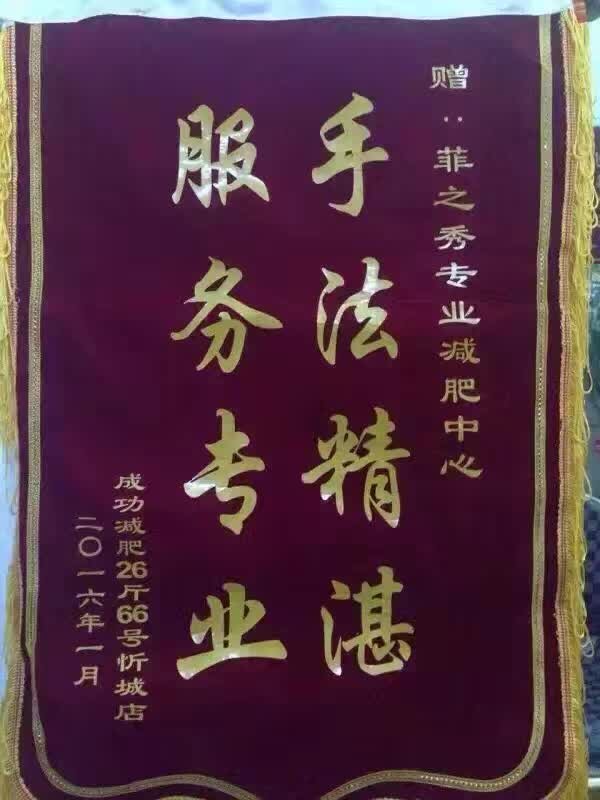 赠：菲之秀专业减肥中心
手法精湛
服务专业
成功减肥26斤66号忻城店
二〇一六年一月